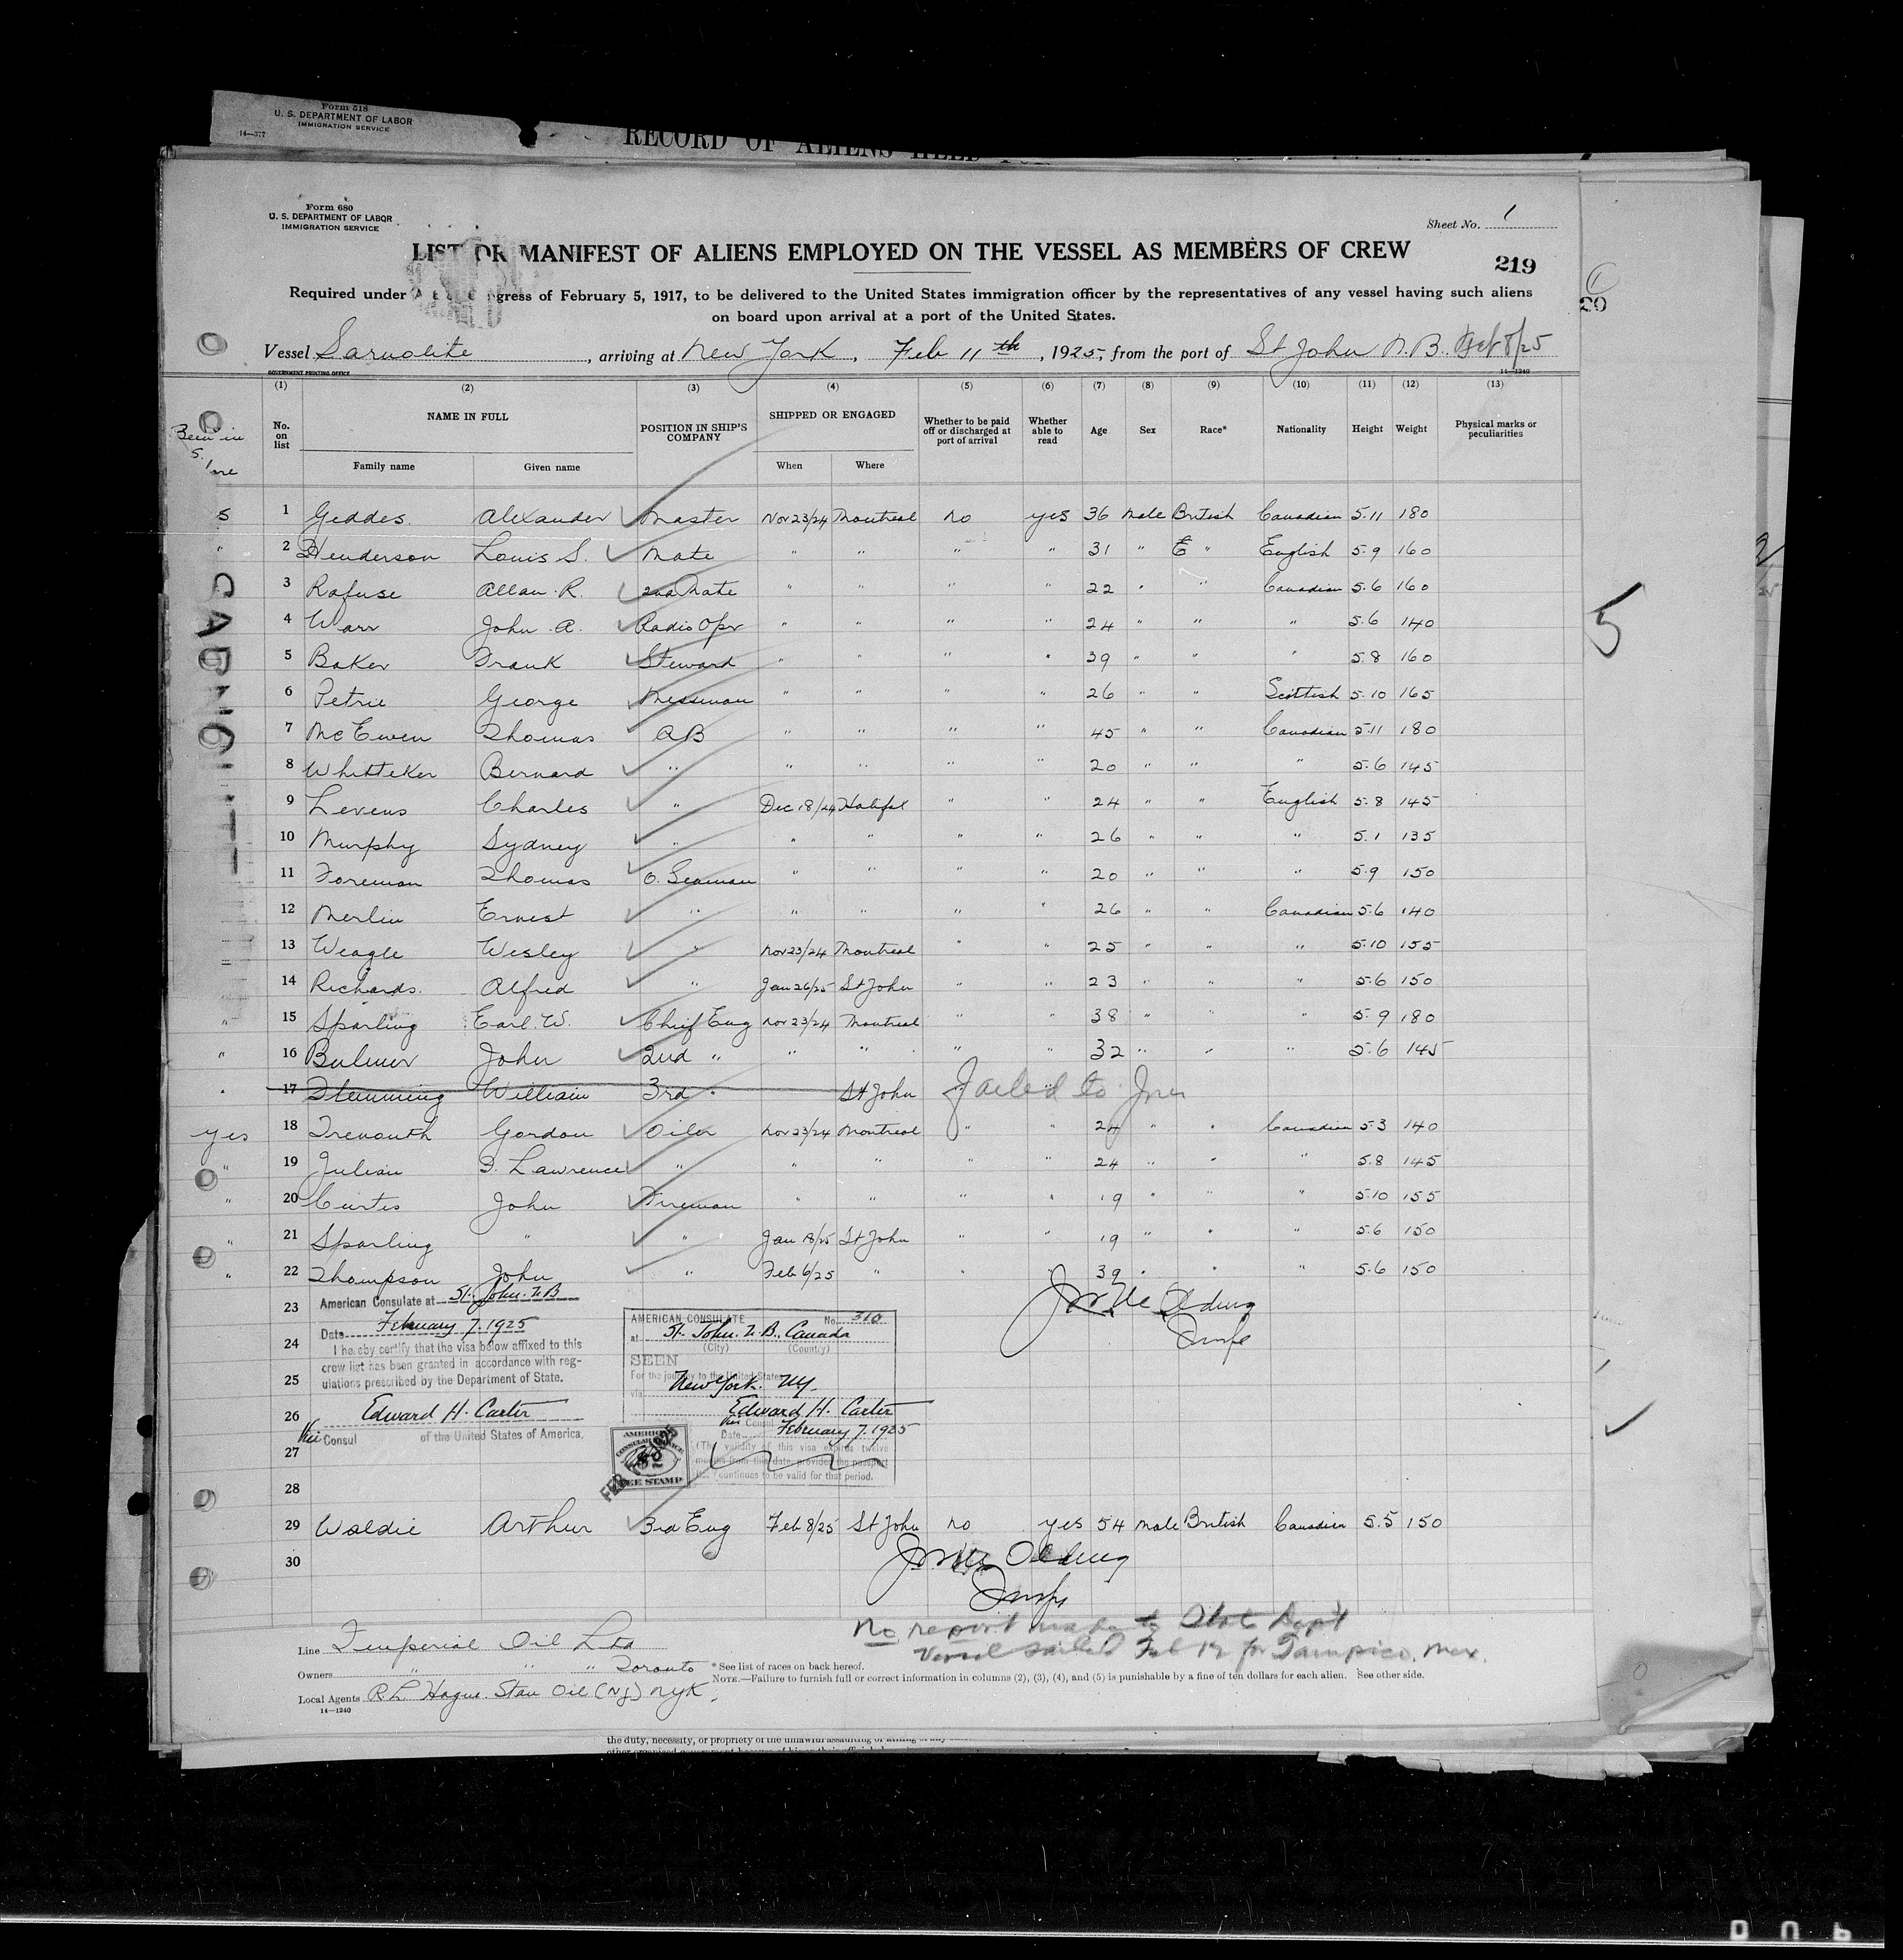 Form 518
U. S. DEPARTMENT OF LABOR
IMMIGRATION SERVICE
14—377
RECORD OF ALIENS HELD
Form 680
U. S. DEPARTMENT OF LABOR
IMMIGRATION SERVICE
Sheet No. 1
LIST OR MANIFEST OF ALIENS EMPLOYED ON THE VESSEL AS MEMBERS OF CREW
219
20
Required under Act of Congress of February 5, 1917, to be delivered to the United States immigration officer by the representatives of any vessel having such aliens
on board upon arrival at a port of the United States.
Vessel Sarnolite, arriving at New York, Feb 11th, 1925, from the port of St John N.B. Feb 8/25
GOVERNMENT PRINTING OFFICE 14—1240
(1) (2) (3) (4) (5) (6) (7) (8) (9) (10) (11) (12) (13)
No. on list NAME IN FULL POSITION IN SHIP'S COMPANY SHIPPED OR ENGAGED Whether to be paid off or discharged at port of arrival Whether able to read Age Sex Race* Nationality Height Weight Physical marks or peculiarities
Family name Given name When Where
Been in
S.
5 1 Geddes. Alexander Master Nov 23/24 Montreal no yes 36 Male British Canadian 5.11 180
" 2 Henderson Louis S. Mate " " " " 31 " E " English 5.9 160
3 Rafuse Allan R. 2nd Mate " " " " 22 " " Canadian 5.6 160
4 Warr John A. Radio Opr " " " " 24 " " " 5.6 140
5 Baker Frank Steward " " " " 39 " " " 5.8 160
6 Petrie George Messman " " " " 26 " " Scottish 5.10 165
7 McEwen Thomas AB " " " " 45 " " Canadian 5.11 180
8 Whitteker Bernard " " " " " 20 " " " 5.6 145
9 Levens Charles " Dec 18/24 Halifax " " 24 " " English 5.8 145
10 Murphy Sydney " " " " " 26 " " " 5.1 135
11 Foreman Thomas O. Seaman " " " " 20 " " " 5.9 150
12 Merlin Ernest " " " " " 26 " " Canadian 5.6 140
13 Weagle Wesley " Nov 23/24 Montreal " " 25 " " " 5.10 155
14 Richards. Alfred " Jan 26/25 St John " " 23 " " " 5.6 150
" 15 Sparling Earl. W. Chief Eng Nov 23/24 Montreal " " 38 " " " 5.9 180
" 16 Bulmer John 2nd " " " " " 32 " " " 5.6 145
" 17 Flemming William 3rd " St John Failed to Join
yes 18 Trenouth Gordon Oiler Nov 23/24 Montreal " " 24 " " Canadian 5.3 140
" 19 Julian D. Lawrence " " " " " 24 " " " 5.8 145
" 20 Curtis John Fireman " " " " 19 " " " 5.10 155
" 21 Sparling " " Jan 18/25 St John " " 19 " " " 5.6 150
" 22 Thompson John " Feb 6/25 " " " 39 " " " 5.6 150
23
24
25
26
27
28
American Consulate at St. John. N.B
Date February 7. 1925
I hereby certify that the visa below affixed to this
crew list has been granted in accordance with reg-
ulations prescribed by the Department of State.
Edward H. Carter
Vice Consul of the United States of America.
AMERICAN CONSULATE No. 310
at St. John. N.B., Canada
(City) (Country)
SEEN
For the journey to the United States
via New York. NY.
Edward H. Carter
Vice Consul
Date February 7. 1925
(The validity of this visa expires twelve
months from this date, provided the passport
continues to be valid for that period.
AMERICAN
CONSULAR SERVICE
FEE STAMP
29 Waldie Arthur 3rd Eng Feb 8/25 St John no yes 54 Male British Canadian 5.5 150
30
No report made to State Dept
Vessel sailed Feb 12 for Tampico, Mex.
Line Imperial Oil Ltd
Owners " " " Toronto
*See list of races on back hereof.
NOTE.—Failure to furnish full or correct information in columns (2), (3), (4), and (5) is punishable by a fine of ten dollars for each alien. See other side.
Local Agents R.L. Hague. Stan Oil (NJ) NYK.
14—1240
5
the duty, necessity, or propriety of the unlawful assaulting or killing of any